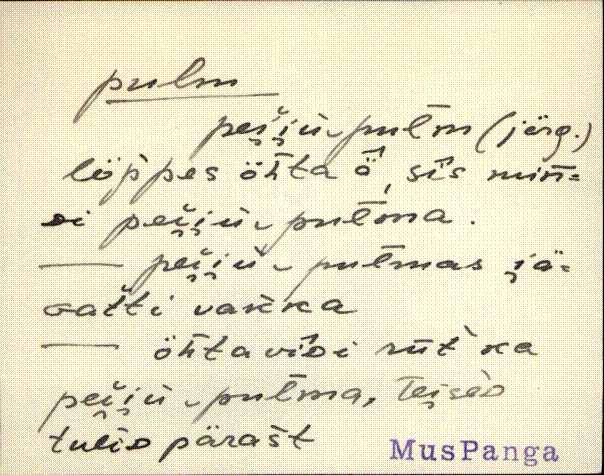 pulm
pei̯i̯ŭ pulm (järg.)
lõppes õhta ȫ, sīs miń-
di pei̯i̯ŭ pulma.
— pei̯i̯ŭ pulmas jä-
gatti vakka
— õhta vīdi rūťka
pei̯i̯ŭ pulma, tei̯sed
tulid pärašt
MusPanga